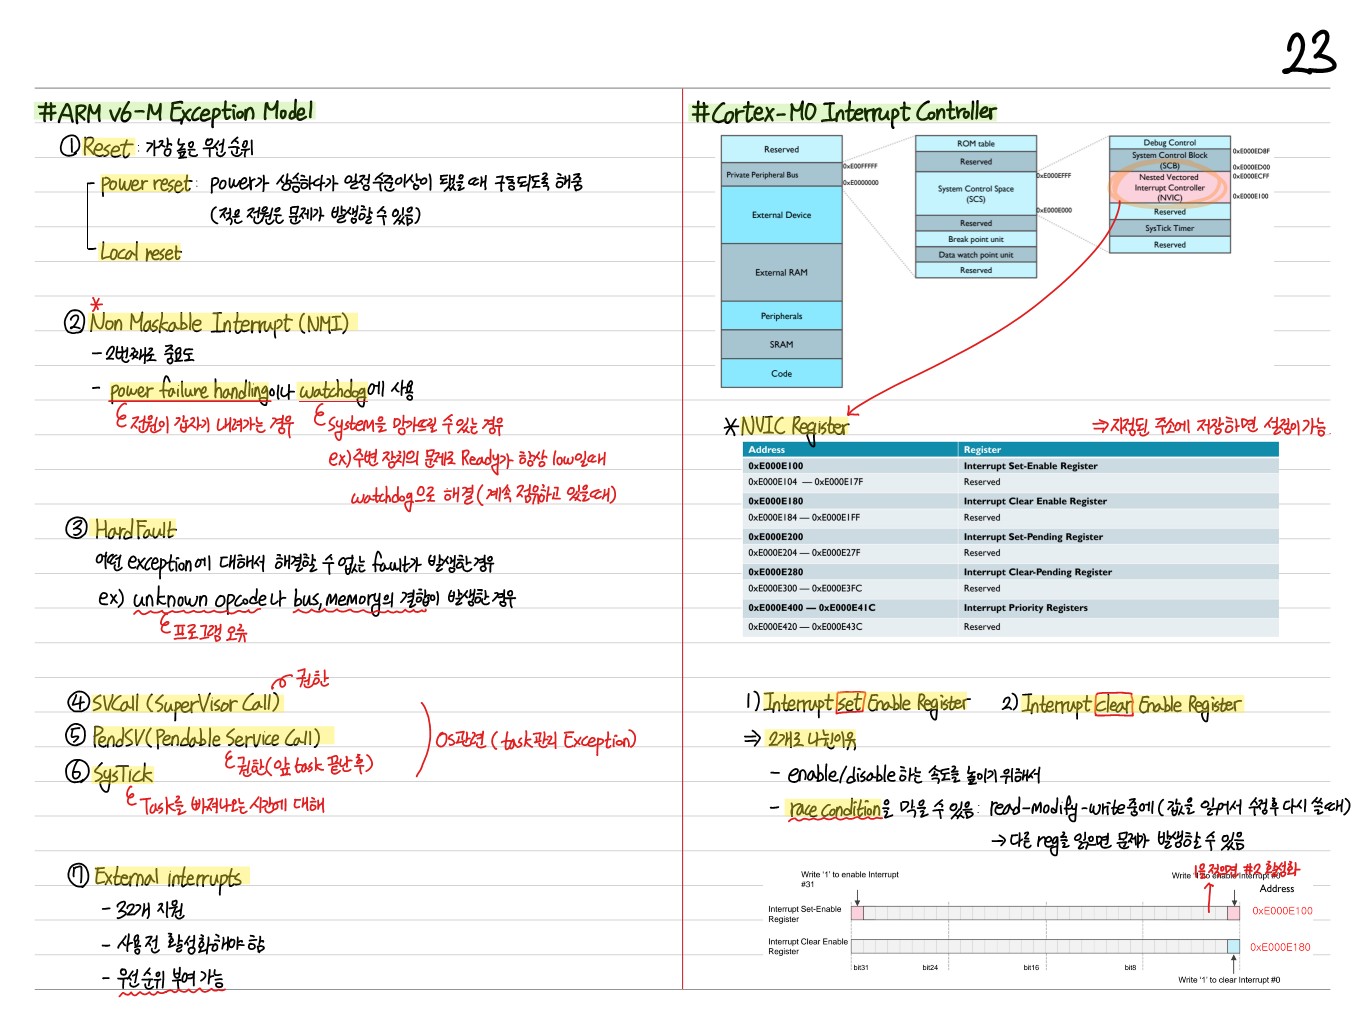 23
#ARM v6-M Exception Model
① Reset : 가장 높은 우선순위
power reset : power가 상승하다가 일정수준이상이 됐을때 구동되도록 해줌
(적은 전원은 문제가 발생할 수 있음)
Local reset
*
② Non Maskable Interrupt (NMI)
- 2번째로 중요도
- power failure handling이나 watchdog에 사용
전원이 갑자기 내려가는 경우
System을 망가뜨릴 수 있는 경우
ex) 주변 장치의 문제로 Ready가 항상 low일때
watchdog으로 해결 (계속 점유하고 있을때)
③ HardFault
어떤 exception에 대해서 해결할 수 없는 fault가 발생한 경우
ex) unknown opcode나 bus, memory의 결함이 발생한 경우
프로그램 오류
권한
④ SVCall (SuperVisor Call)
⑤ PendSV (Pendable Service Call)
OS관련 (task관리 Exception)
권한(앞 task 끝난 후)
⑥ SysTick
Task를 빠져나오는 시간에 대해
⑦ External interrupts
- 32개 지원
- 사용 전 활성화해야 함
- 우선순위 부여 가능
#Cortex-M0 Interrupt Controller
Reserved
Private Peripheral Bus
External Device
External RAM
Peripherals
SRAM
Code
0xE00FFFFF
0xE0000000
ROM table
Reserved
System Control Space
(SCS)
Reserved
Break point unit
Data watch point unit
Reserved
0xE000EFFF
0xE000E000
Debug Control
System Control Block
(SCB)
Nested Vectored
Interrupt Controller
(NVIC)
Reserved
SysTick Timer
Reserved
0xE000ED8F
0xE000ED00
0xE000ECFF
0xE000E100
* NVIC Register
⇒ 지정된 주소에 저장하면 설정이 가능
Address Register
0xE000E100 Interrupt Set-Enable Register
0xE000E104 — 0xE000E17F Reserved
0xE000E180 Interrupt Clear Enable Register
0xE000E184 — 0xE000E1FF Reserved
0xE000E200 Interrupt Set-Pending Register
0xE000E204 — 0xE000E27F Reserved
0xE000E280 Interrupt Clear-Pending Register
0xE000E300 — 0xE000E3FC Reserved
0xE000E400 — 0xE000E41C Interrupt Priority Registers
0xE000E420 — 0xE000E43C Reserved
1) Interrupt set Enable Register 2) Interrupt clear Enable Register
⇒ 2개로 나뉜이유
- enable/disable 하는 속도를 높이기 위해서
- race condition을 막을 수 있음 : read-modify-write 중에 (값을 읽어서 수정후 다시 쓸때)
→ 다른 reg를 읽으면 문제가 발생할 수 있음
Write '1' to enable Interrupt
#31
Write '1' to enable Interrupt #0
1을 적으면 #2 활성화
Address
Interrupt Set-Enable
Register
0xE000E100
Interrupt Clear Enable
Register
0xE000E180
bit31 bit24 bit16 bit8
Write '1' to clear Interrupt #0